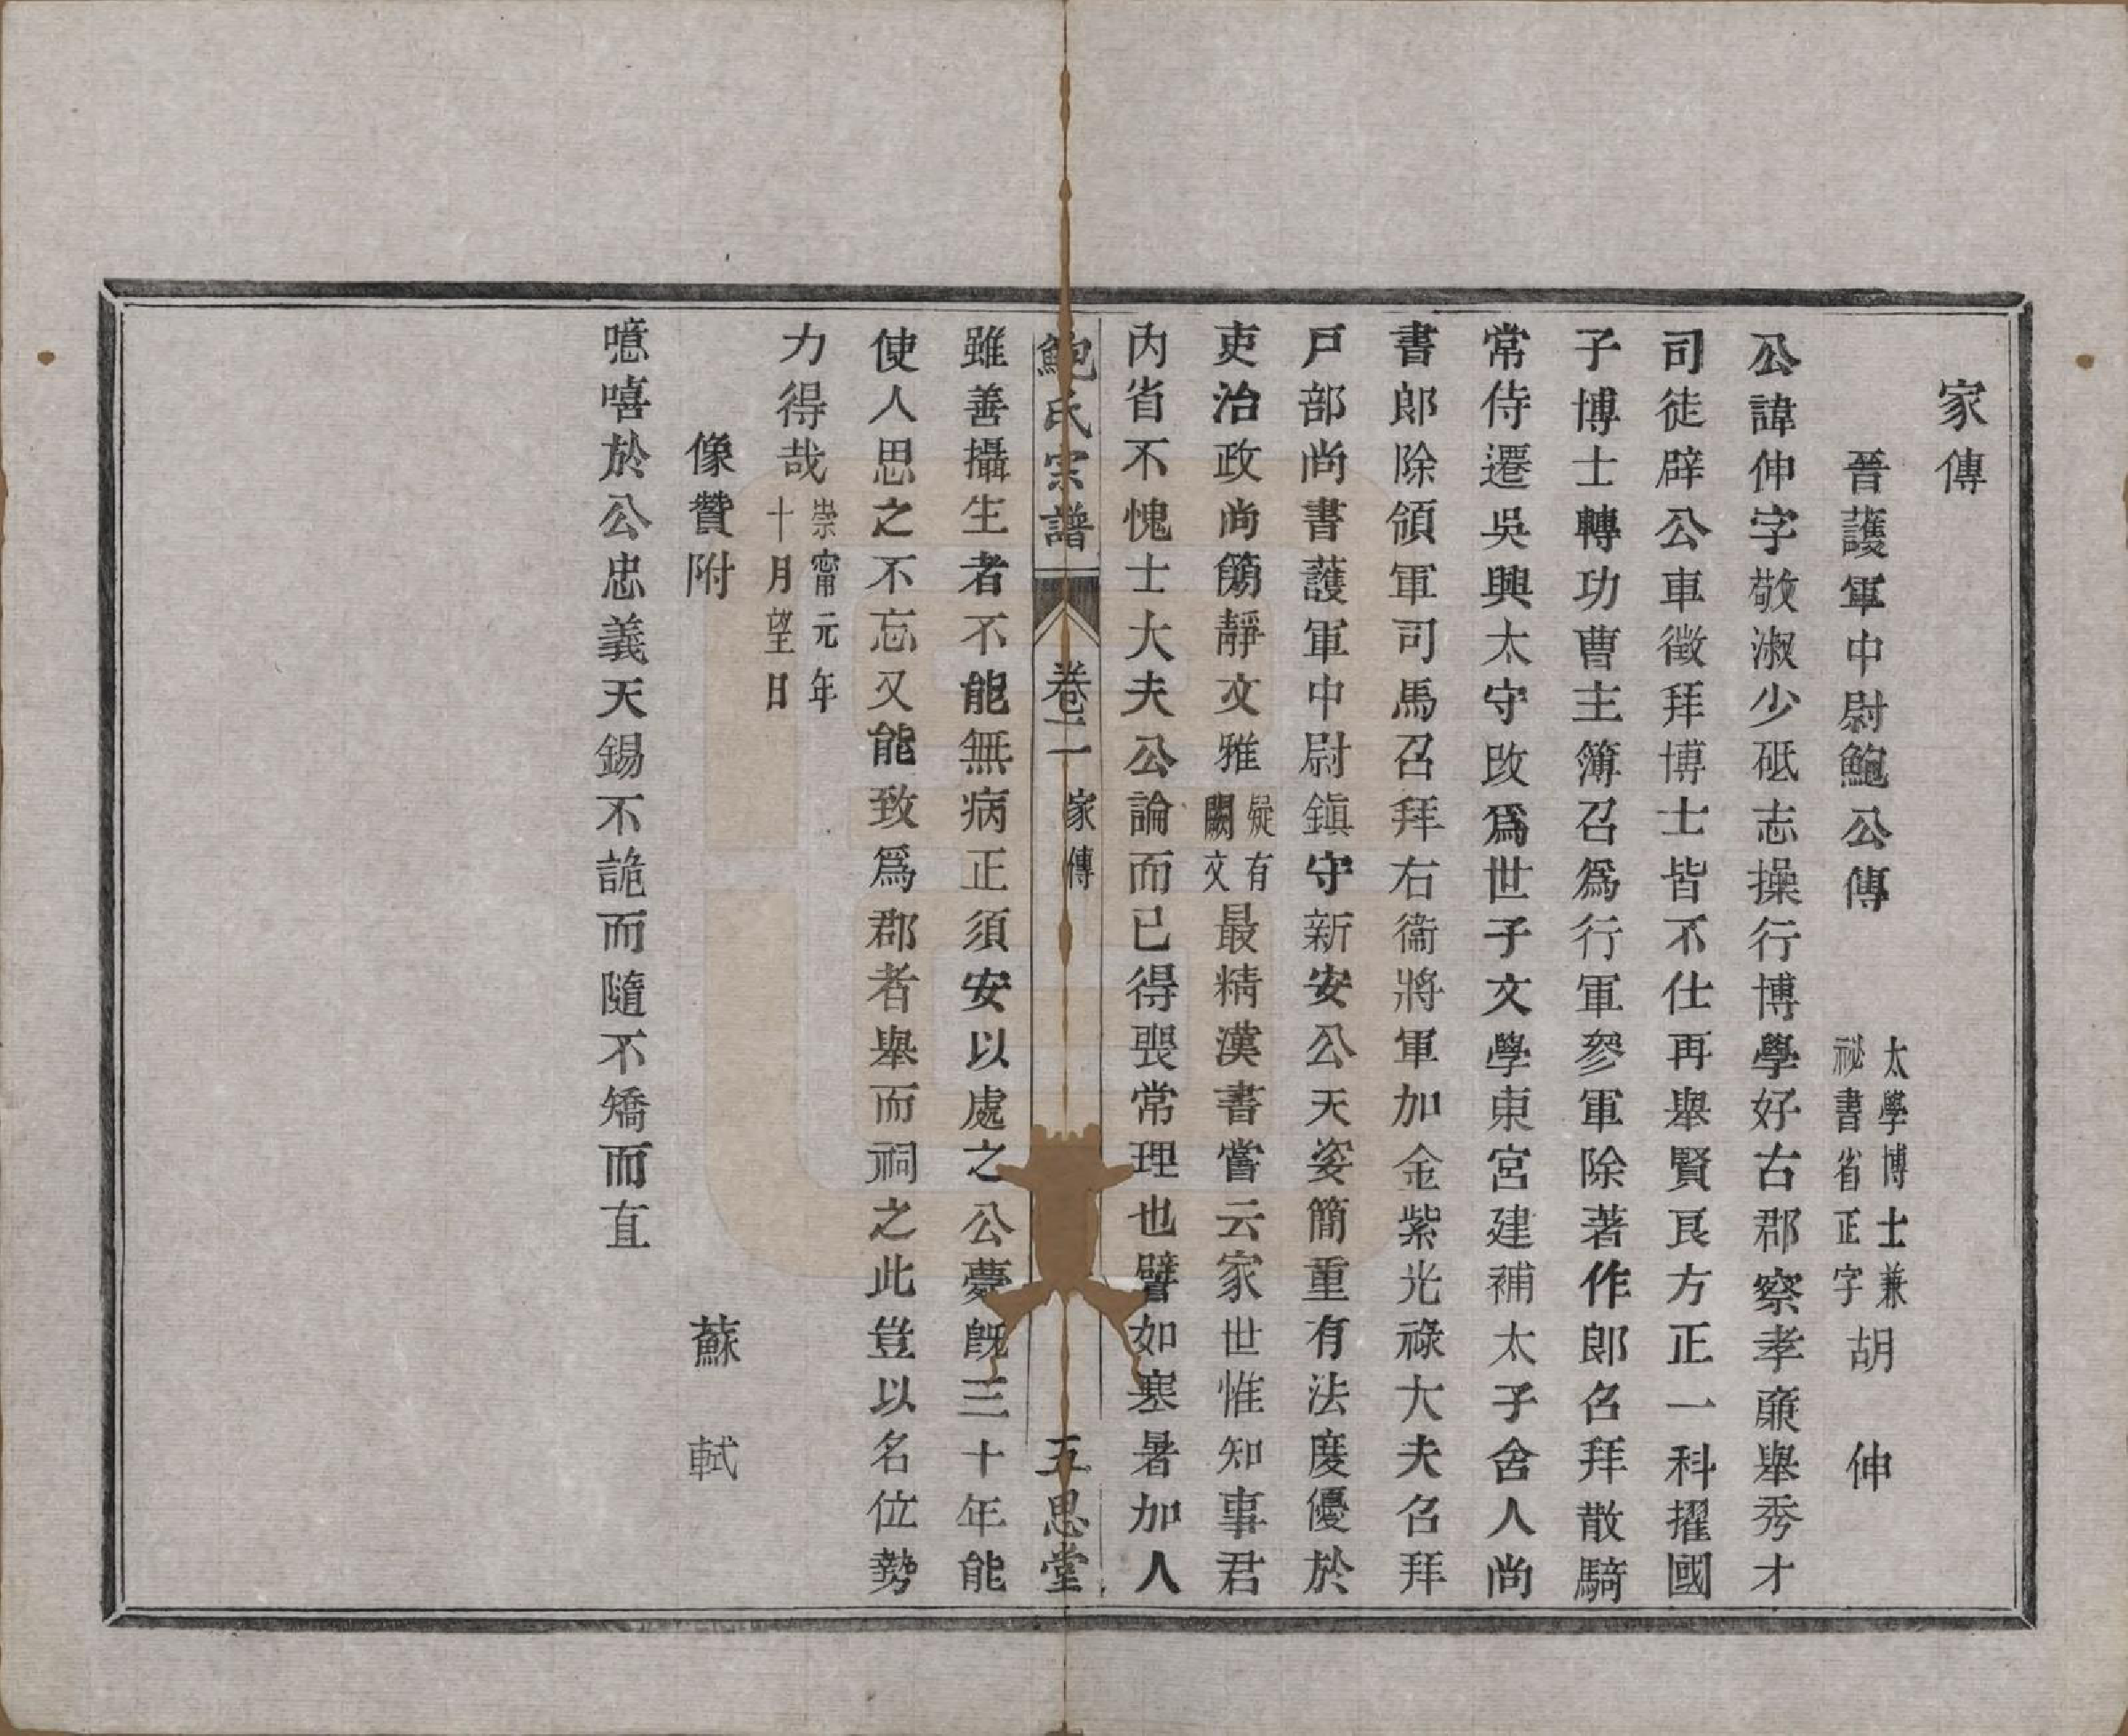 家傳
晉護軍中尉鮑公傳 太學博士兼祕書省正字 胡 伸
公諱伸字敬淑少砥志操行博學好古郡察孝廉舉秀才
司徒辟公車徵拜博士皆不仕再舉賢良方正一科擢國
子博士轉功曹主簿召爲行軍參軍除著作郎名拜散騎
常侍遷吳興太守改爲世子文學東宮建補太子舍人尚
書郎除領軍司馬召拜右衞將軍加金紫光祿大夫名拜
戸部尚書護軍中尉鎮守新安公天姿簡重有法度優於
吏治政尚簡靜文雅疑有闕文最精漢書嘗云家世惟知事君
內省不愧士大夫公論而已得喪常理也譬如寒暑加人
鮑氏宗譜 卷二 家傳 五思堂
雖善攝生者不能無病正須安以處之公薨旣三十年能
使人思之不忘又能致爲郡者舉而祠之此豈以名位勢
力得哉 崇甯元年十月望日
像贊附 蘇 軾
噫嘻於公忠義天錫不詭而隨不矯而直